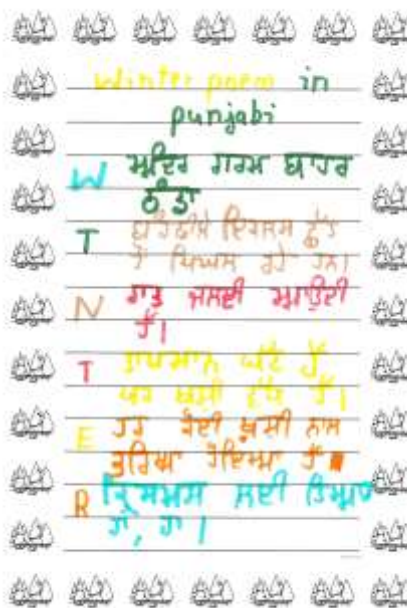 Winter poem in
punjabi
W ਅੰਦਿਰ ਗਰਮ ਬਾਹਰ
ਠੰਡਾ
I
ਰਹੇ ਹਨ।
N ਰਾਤ ਜਲਦੀ ਆਉਂਦੀ
ਹੈ।
T ਤਾਪਮਾਨ ਘੱਟ ਹੈ
ਪਰ ਖੁਸ਼ੀ ਵੱਧ ਹੈ।
E ਹਰ ਕੋਈ ਖੁਸ਼ੀ ਨਾਲ
ਭਰਿਆ ਹੋਇਆ ਹੈ
R ਕ੍ਰਿਸਮਸ ਲਈ ਤਿਆਰ
ਹਾਂ, ਹਾਂ।